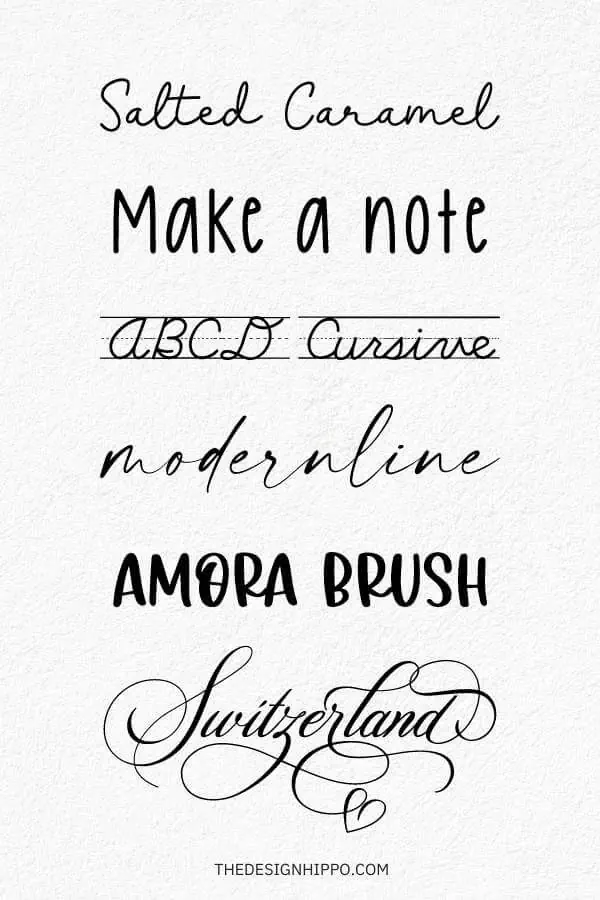 Salted Caramel
Make a note
ABCD Cursive
modernline
AMORA BRUSH
Switzerland
THEDESIGNHIPPO.COM